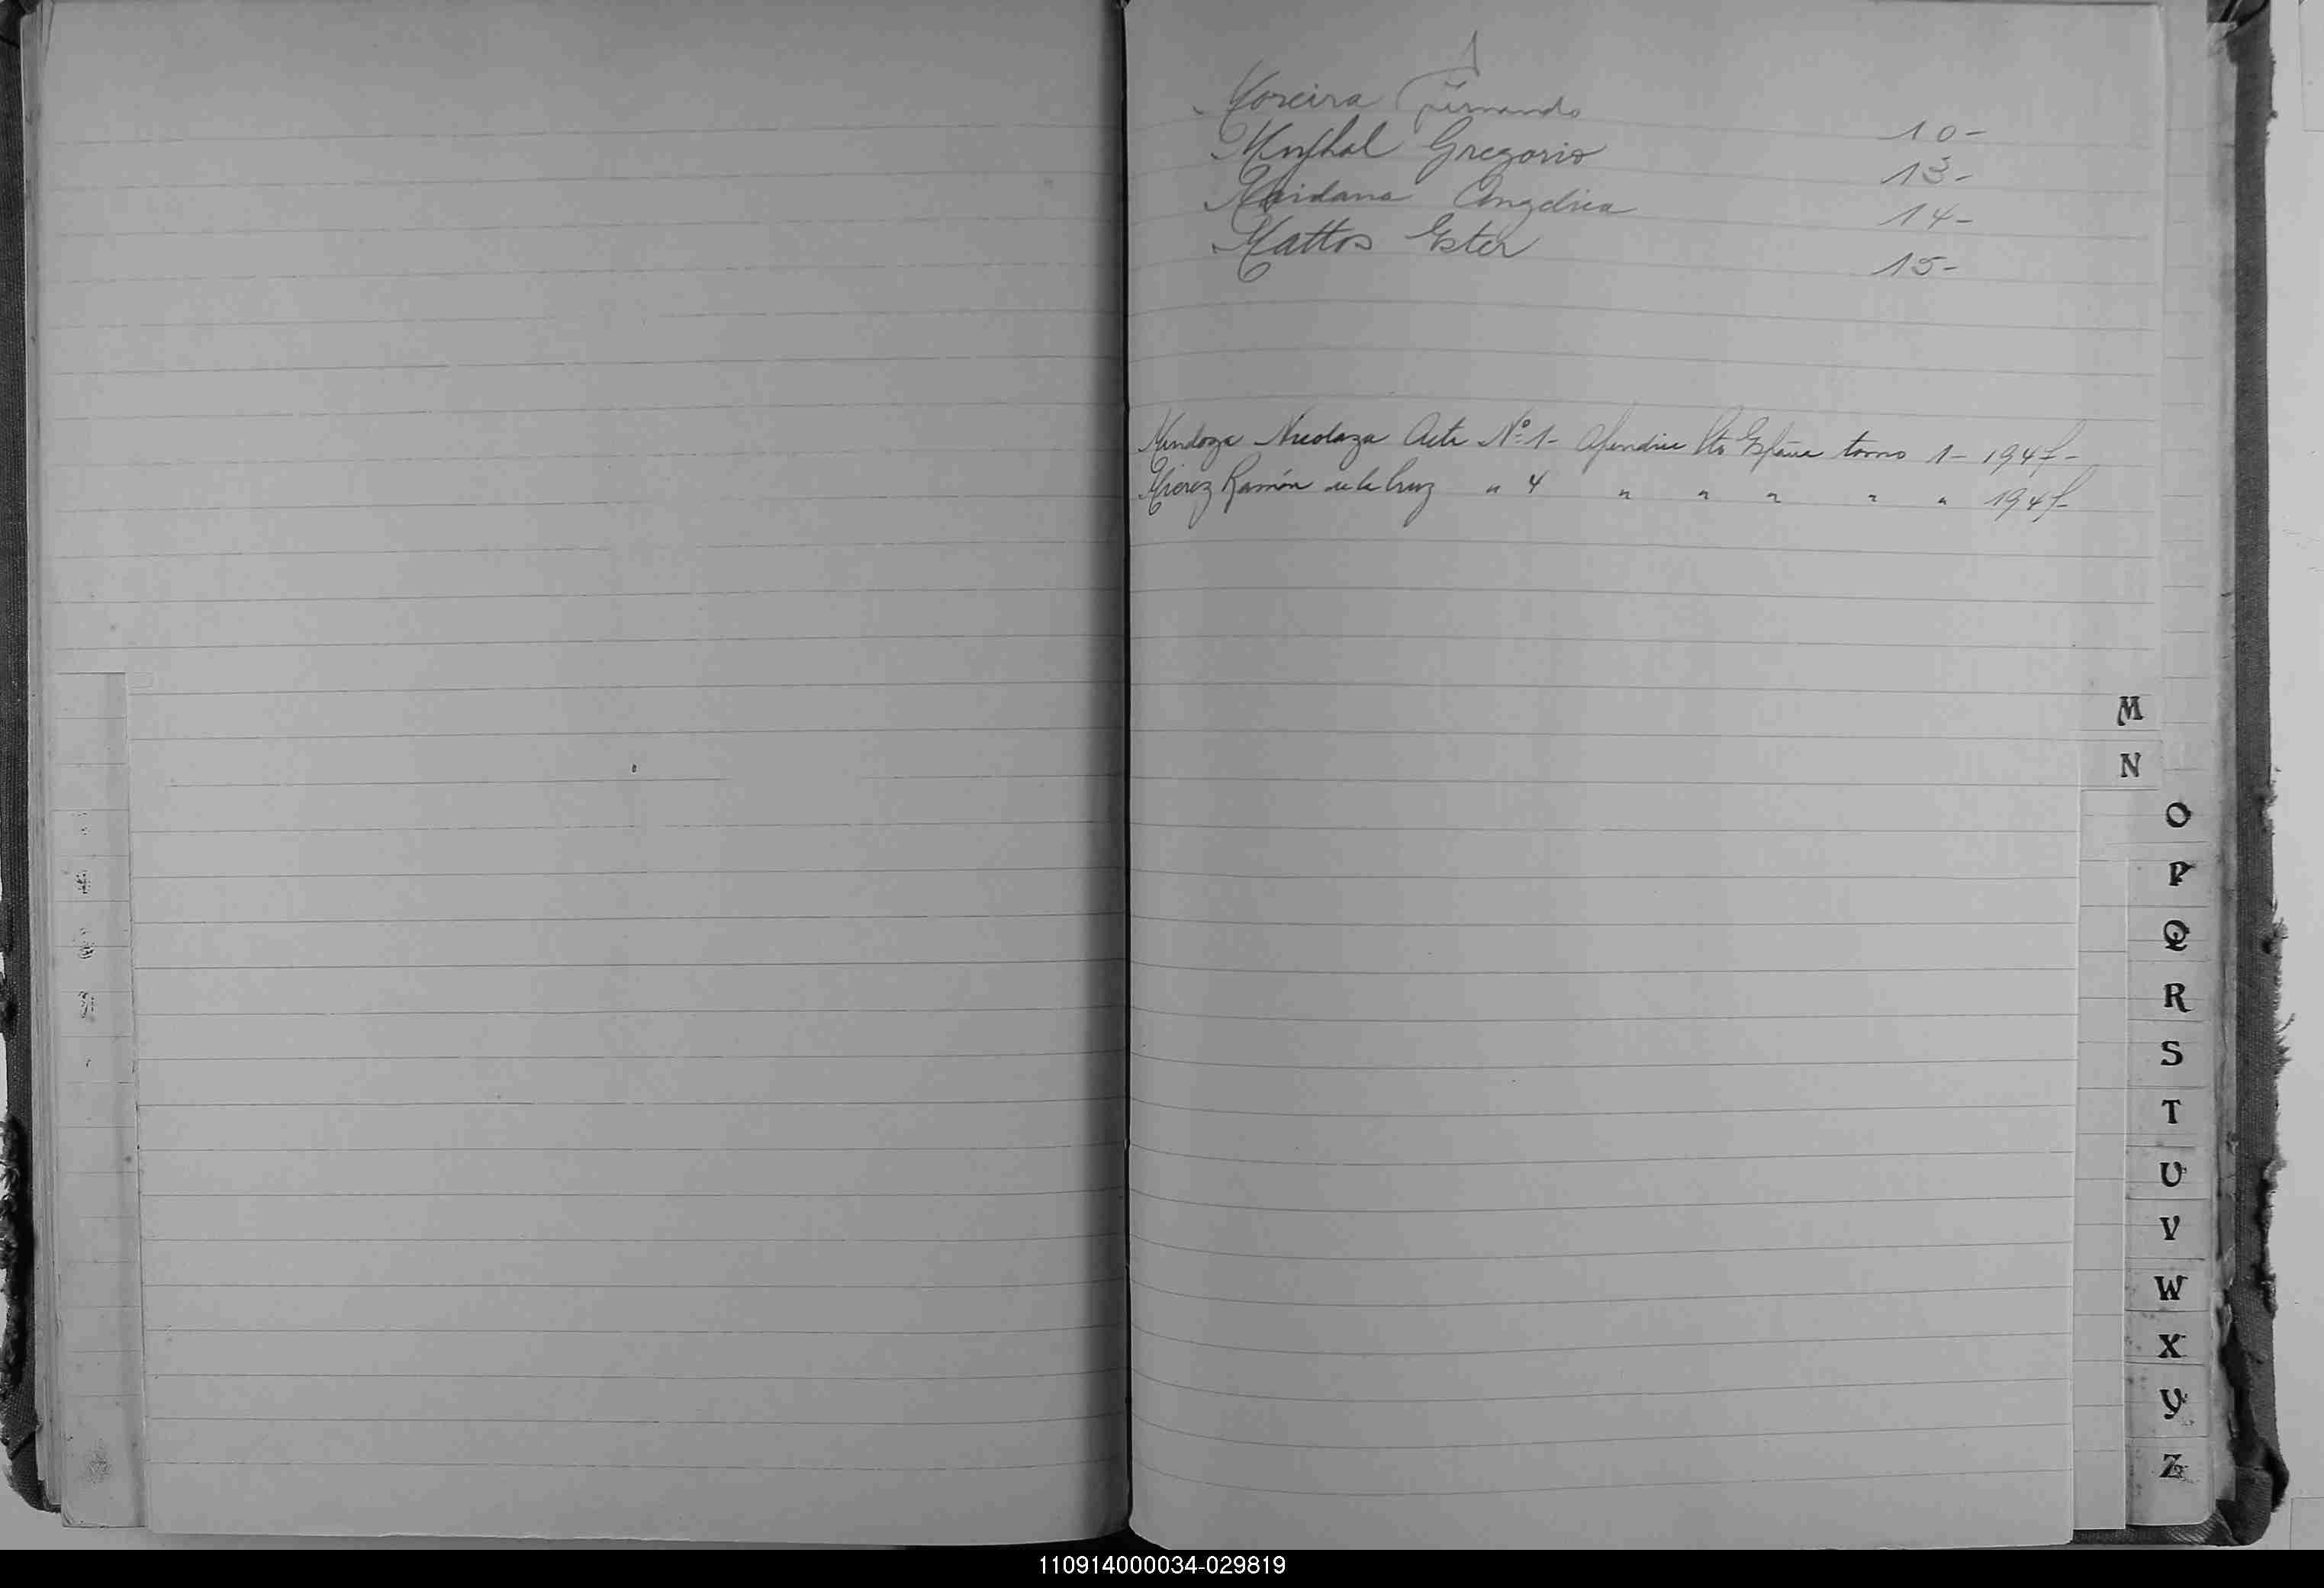 Moreira Fernando 10-
Gregorio 13-
Maidana Angelica 14-
Mattos Ester 15-
Mendoza Nicolaza Acta Nº 1- Apendice Pto tomo 1- 194
Mierez Ramón de la Cruz " 4 " " " " " 194
M
N
O
P
Q
R
S
T
U
V
W
X
Y
Z
110914000034-029819